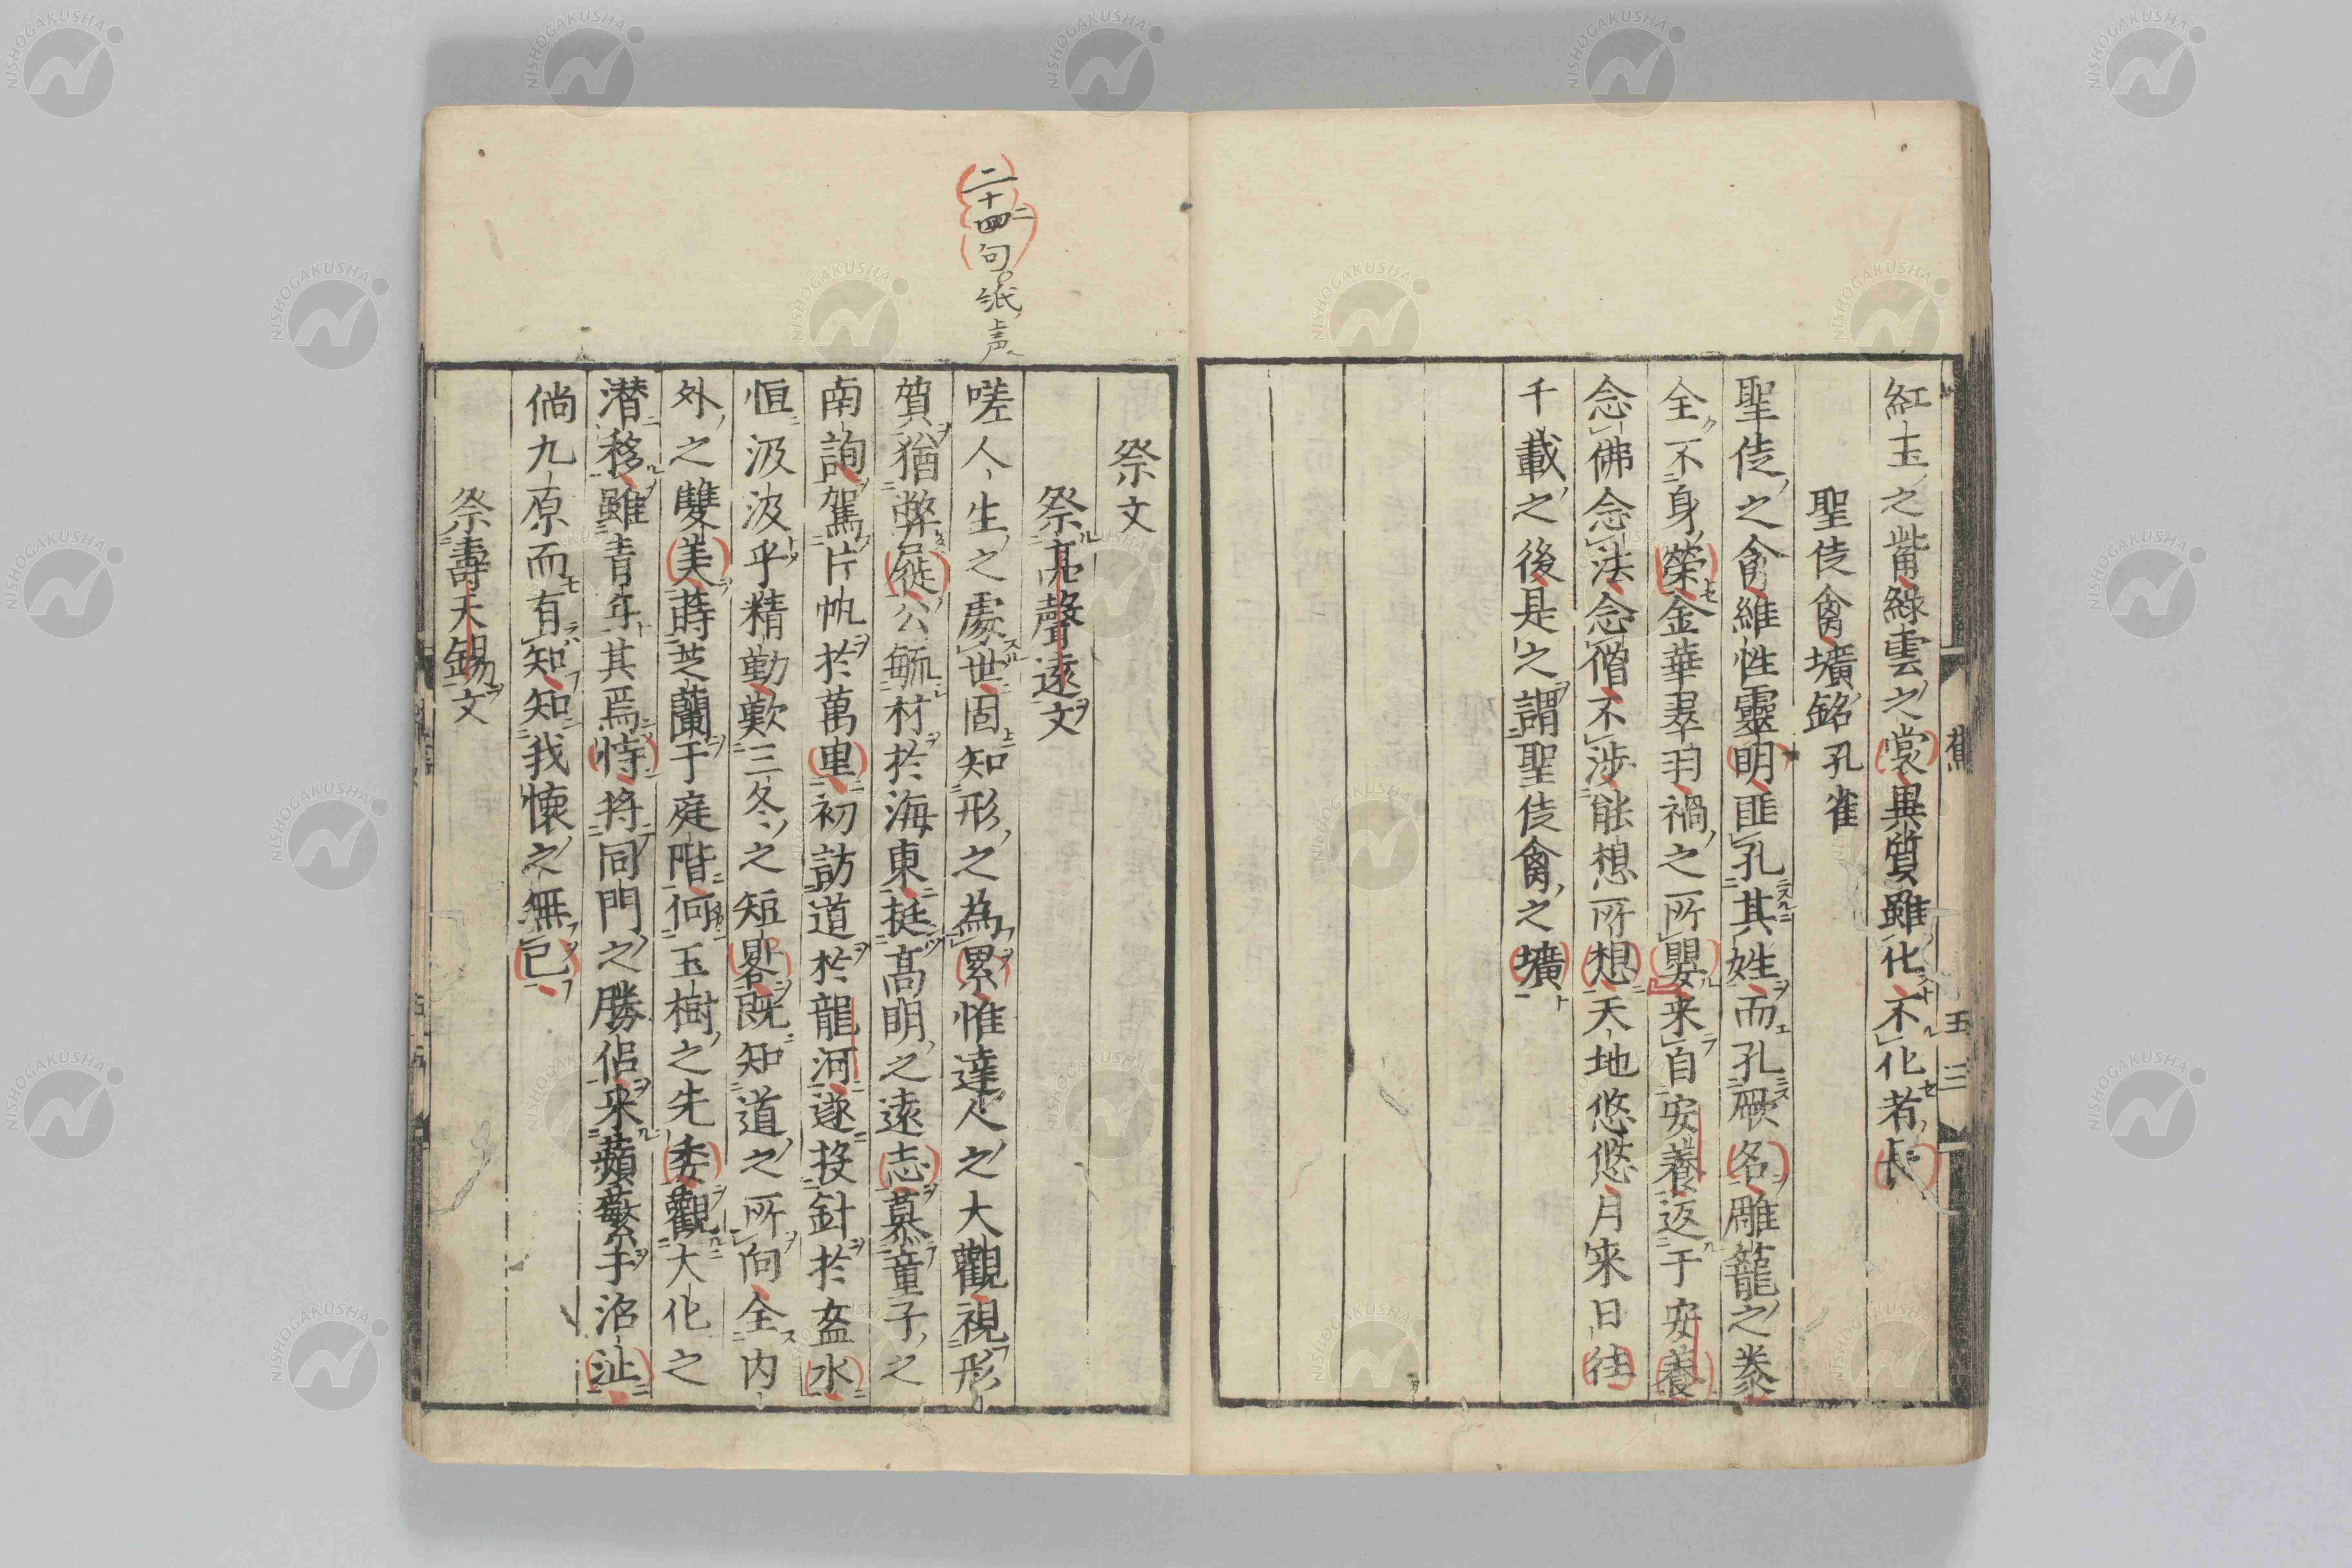 紅玉之觜綠雲之裳異質雖化不化者長
聖徒禽壙銘 孔雀
聖徒之禽維性靈明匪孔其姓而孔厥名雕籠之豢
全不身榮金華翠羽禍之所嬰来自安養返于安養
念佛念法念僧不涉能想所想天地悠悠月来日往
千載之後是之謂聖徒禽之壙
蕉
五三
二十四句。紙上声
祭文
祭亮聲遠文
嗟人生之處世固知形之為累惟達人之大觀視形
質猶弊屣公毓材於海東挺高明之遠志慕童子之
南詢駕片帆於萬里初訪道於龍河遂投針於盔水
恒汲汲乎精勤歎三冬之短晷既知道之所向全内
外之雙美蒔芝蘭于庭階何玉樹之先委觀大化之
潜移雖青年其焉恃将同門之勝侶采蘋蘩乎沼沚
倘九原而有知知我懷之無已
祭壽天錫文